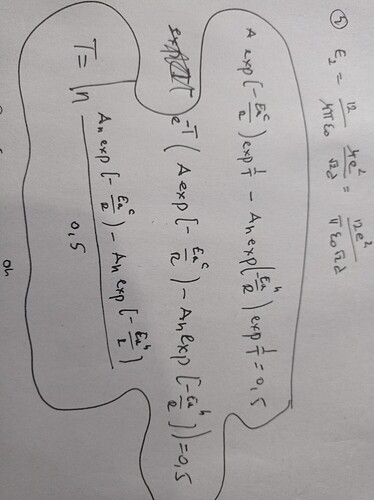 ③ E₂ = 12/4πε₀ 4e²/√2d = 12e²/πε₀√2d
A exp(-Eaᶜ/R) exp 1/T - Aₙ exp(-Eaʰ/R) exp 1/T = 0,5
e^-T (A exp(-Eaᶜ/R) - Aₙ exp(-Eaʰ/R)) = 0,5
T = ln Aₙ exp(-Eaᶜ/R) - Aₙ exp(-Eaʰ/R) / 0,5